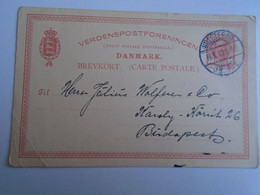 VERDENSPOSTFORENINGEN
(UNION POSTALE UNIVERSELLE)
DANMARK.
BREVKORT. (CARTE POSTALE.)
Til Herrn Julius Wolfner & Co
Karoly-Körút 26
Budapest